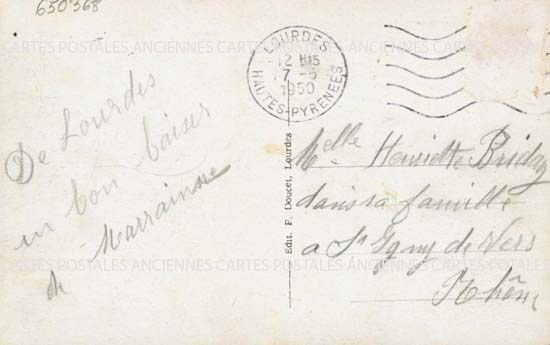 650368
CARTES POSTALES ANCIENNES CARTES POSTALES ANCIENNES CARTES POSTALES
LOURDES
12 H15
7-6
1950
HAUTES-PYRENEES
De Lourdes
un bon baiser
de Marrainne
Edit. F. Doucet, Lourdes
Melle Henriette Briday
dans sa famille
a St Igny de Vers
Rhône
CARTES POSTALES ANCIENNES CARTES POSTALES ANCIENNES CARTES POSTALES